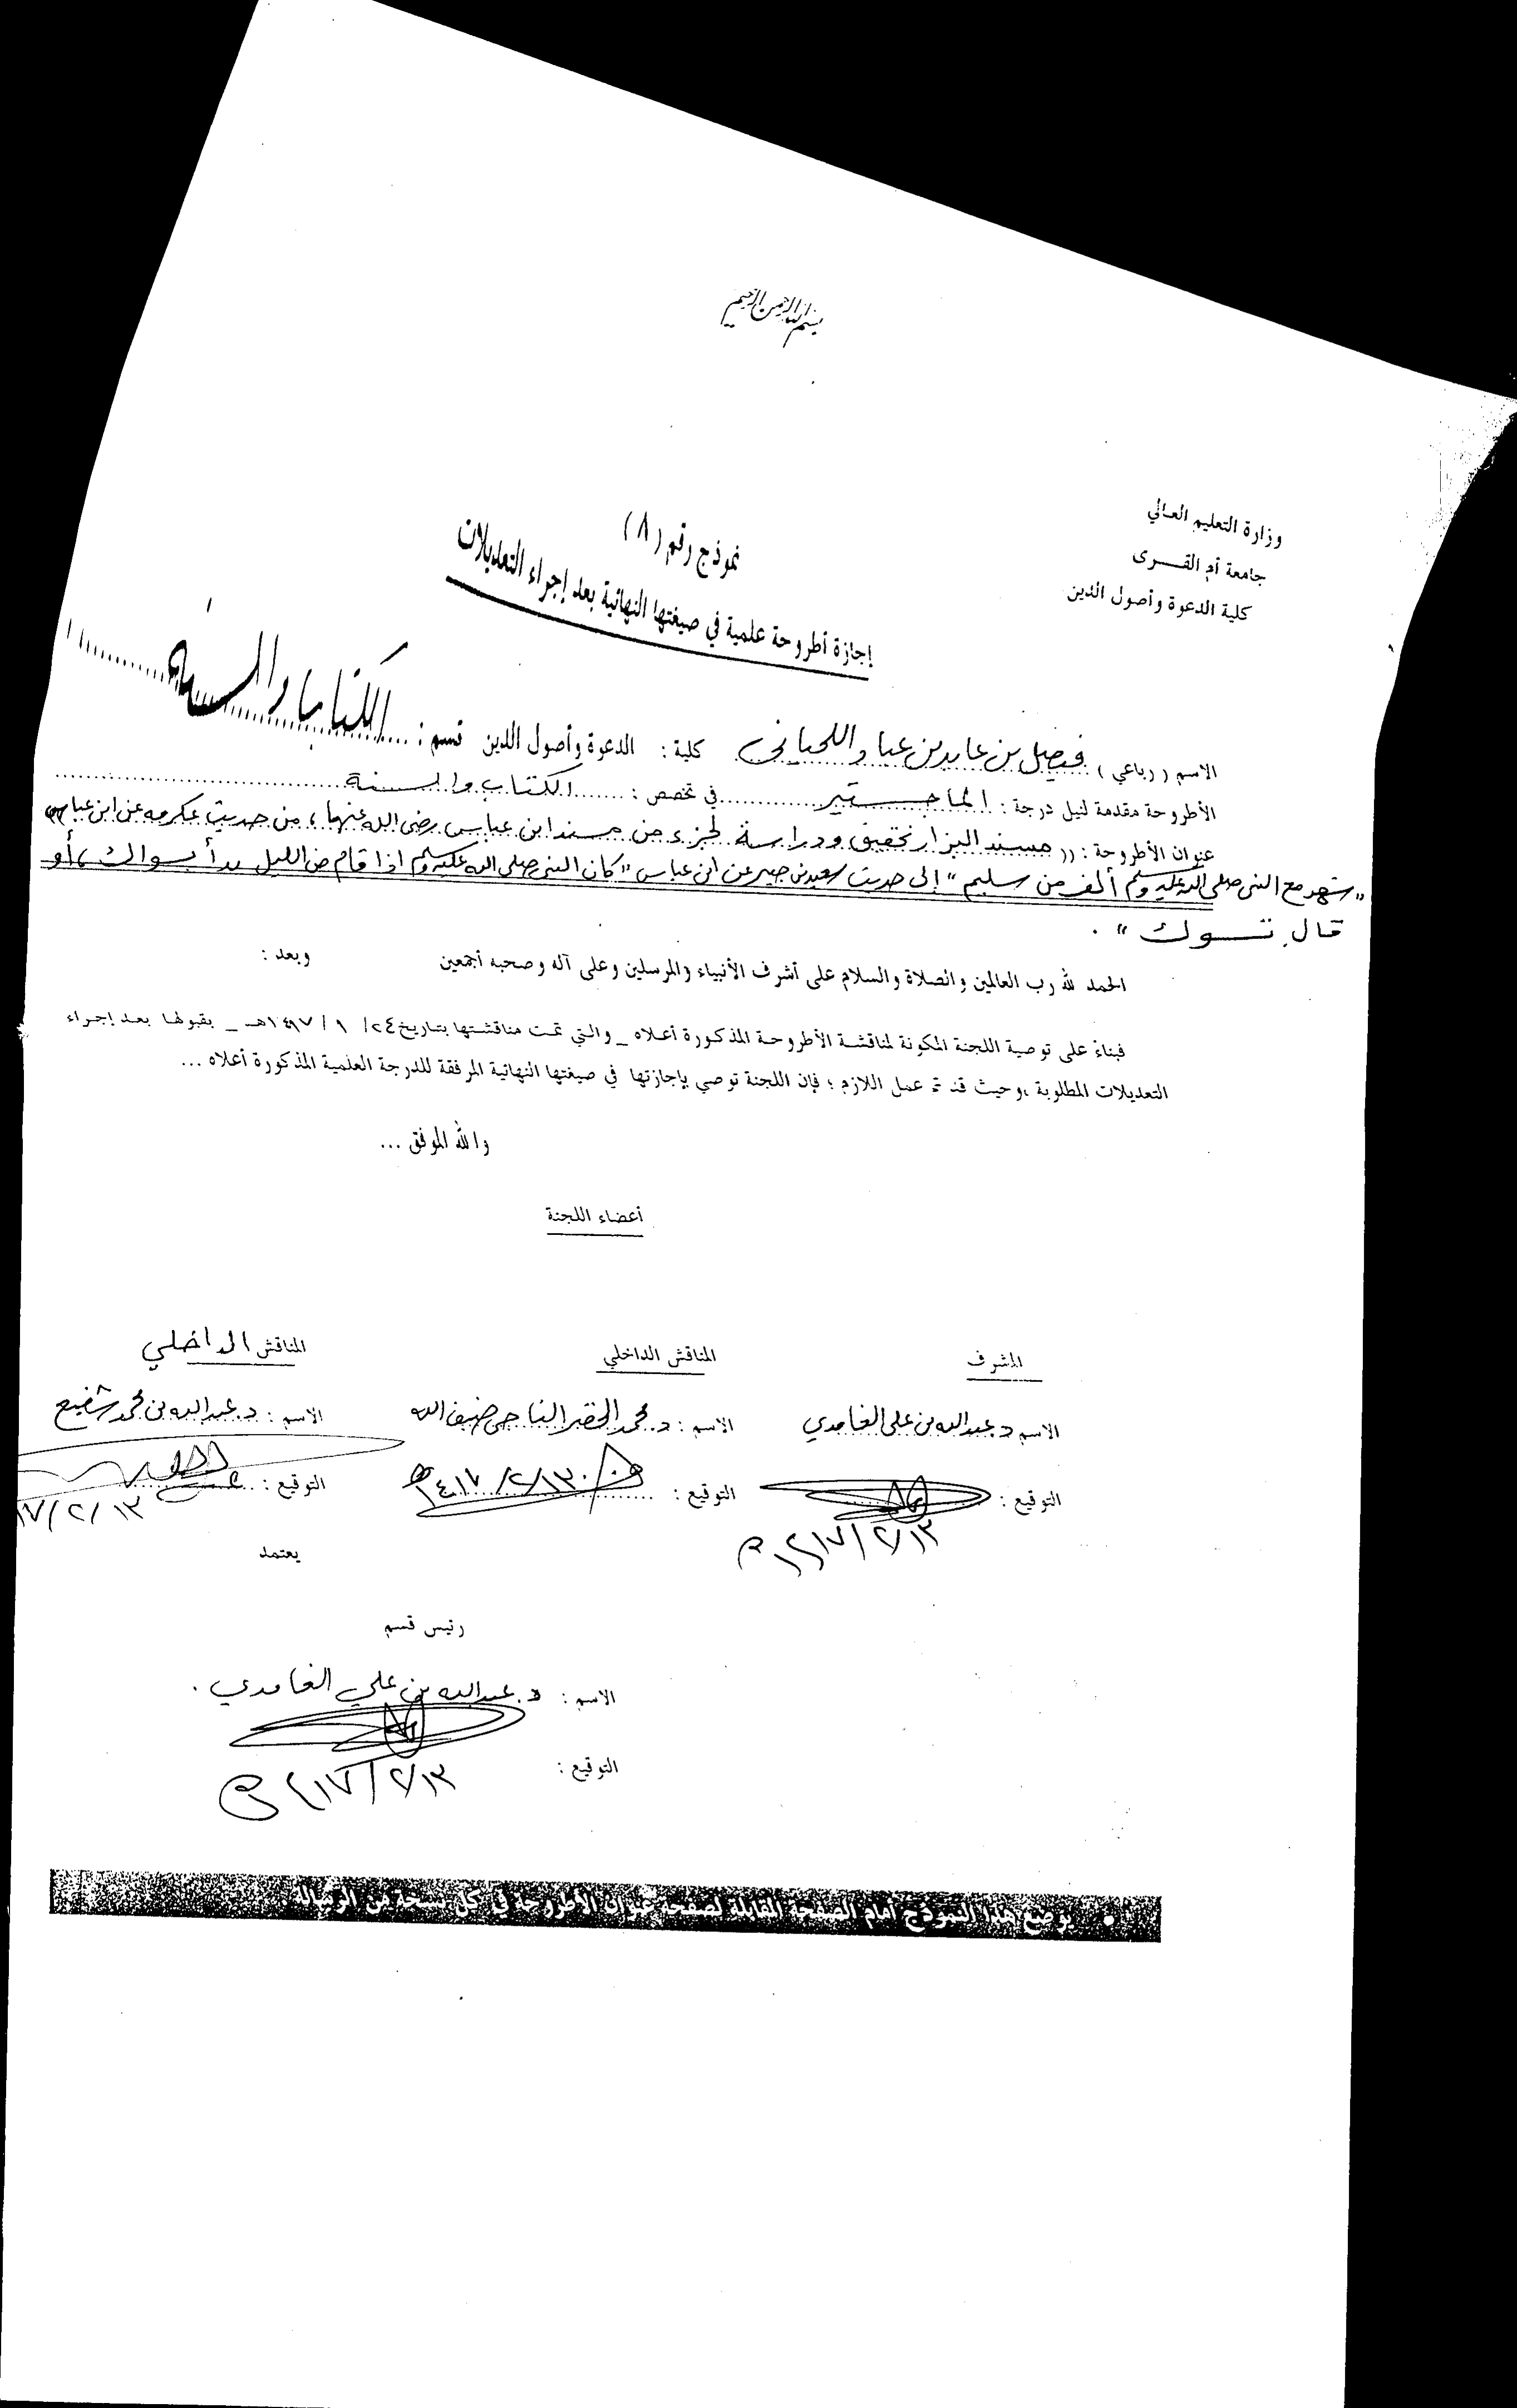 بسم الله الرحمن الرحيم
وزارة التعليم العالي
جامعة أم القرى
كلية الدعوة وأصول الدين
نموذج رقم (٨)
إجازة أطروحة علمية في صيغتها النهائية بعد إجراء التعديلات
الاسم (رباعي) فيصل بن عابد بن عباد اللحياني كلية : الدعوة وأصول الدين قسم : الكتاب والسنة
الأطروحة مقدمة لنيل درجة : الماجستير في تخصص : الكتاب والسنة
عنوان الأطروحة : (( مسند البزار تحقيق ودراسة لجزء من مسند ابن عباس رضي الله عنهما ، من حديث عكرمه عن ابن عباس
" شهد مع النبي صلى الله عليه وسلم ألف من سليم " إلى حديث سعيد بن جبير عن ابن عباس " كان النبي صلى الله عليه وسلم اذا قام من الليل بدأ بسواك ، أو
قال تسوك " .
الحمد لله رب العالمين والصلاة والسلام على أشرف الأنبياء والمرسلين وعلى آله وصحبه أجمعين وبعد :
فبناءً على توصية اللجنة المكونة لمناقشة الأطروحة المذكورة أعلاه _ والتي تمت مناقشتها بتاريخ ٢٤ / ١ / هـ _ بقبولها بعد إجراء
التعديلات المطلوبة ،وحيث قد تم عمل اللازم ؛ فإن اللجنة توصي بإجازتها في صيغتها النهائية المرفقة للدرجة العلمية المذكورة أعلاه ...
والله الموفق ...
أعضاء اللجنة
المشرف المناقش الداخلي المناقش الداخلي
الاسم د. عبد الله بن علي الغامدي الاسم : د. محمد الخضر الناجي ضيف الله الاسم : د. عبد الله بن محمد شفيع
التوقيع : التوقيع : ١٤١٧/٢/١٣هـ التوقيع :
١٤١٧/٢/١٣هـ ١٧/٢/١٣
يعتمد
رئيس قسم
الاسم : د. عبد الله بن علي الغامدي .
التوقيع : ١٤١٧/٢/١٣هـ
• يوضع هذا النموذج أمام الصفحة المقابلة لصفحة عنوان الأطروحة في كل نسخة من الرسالة